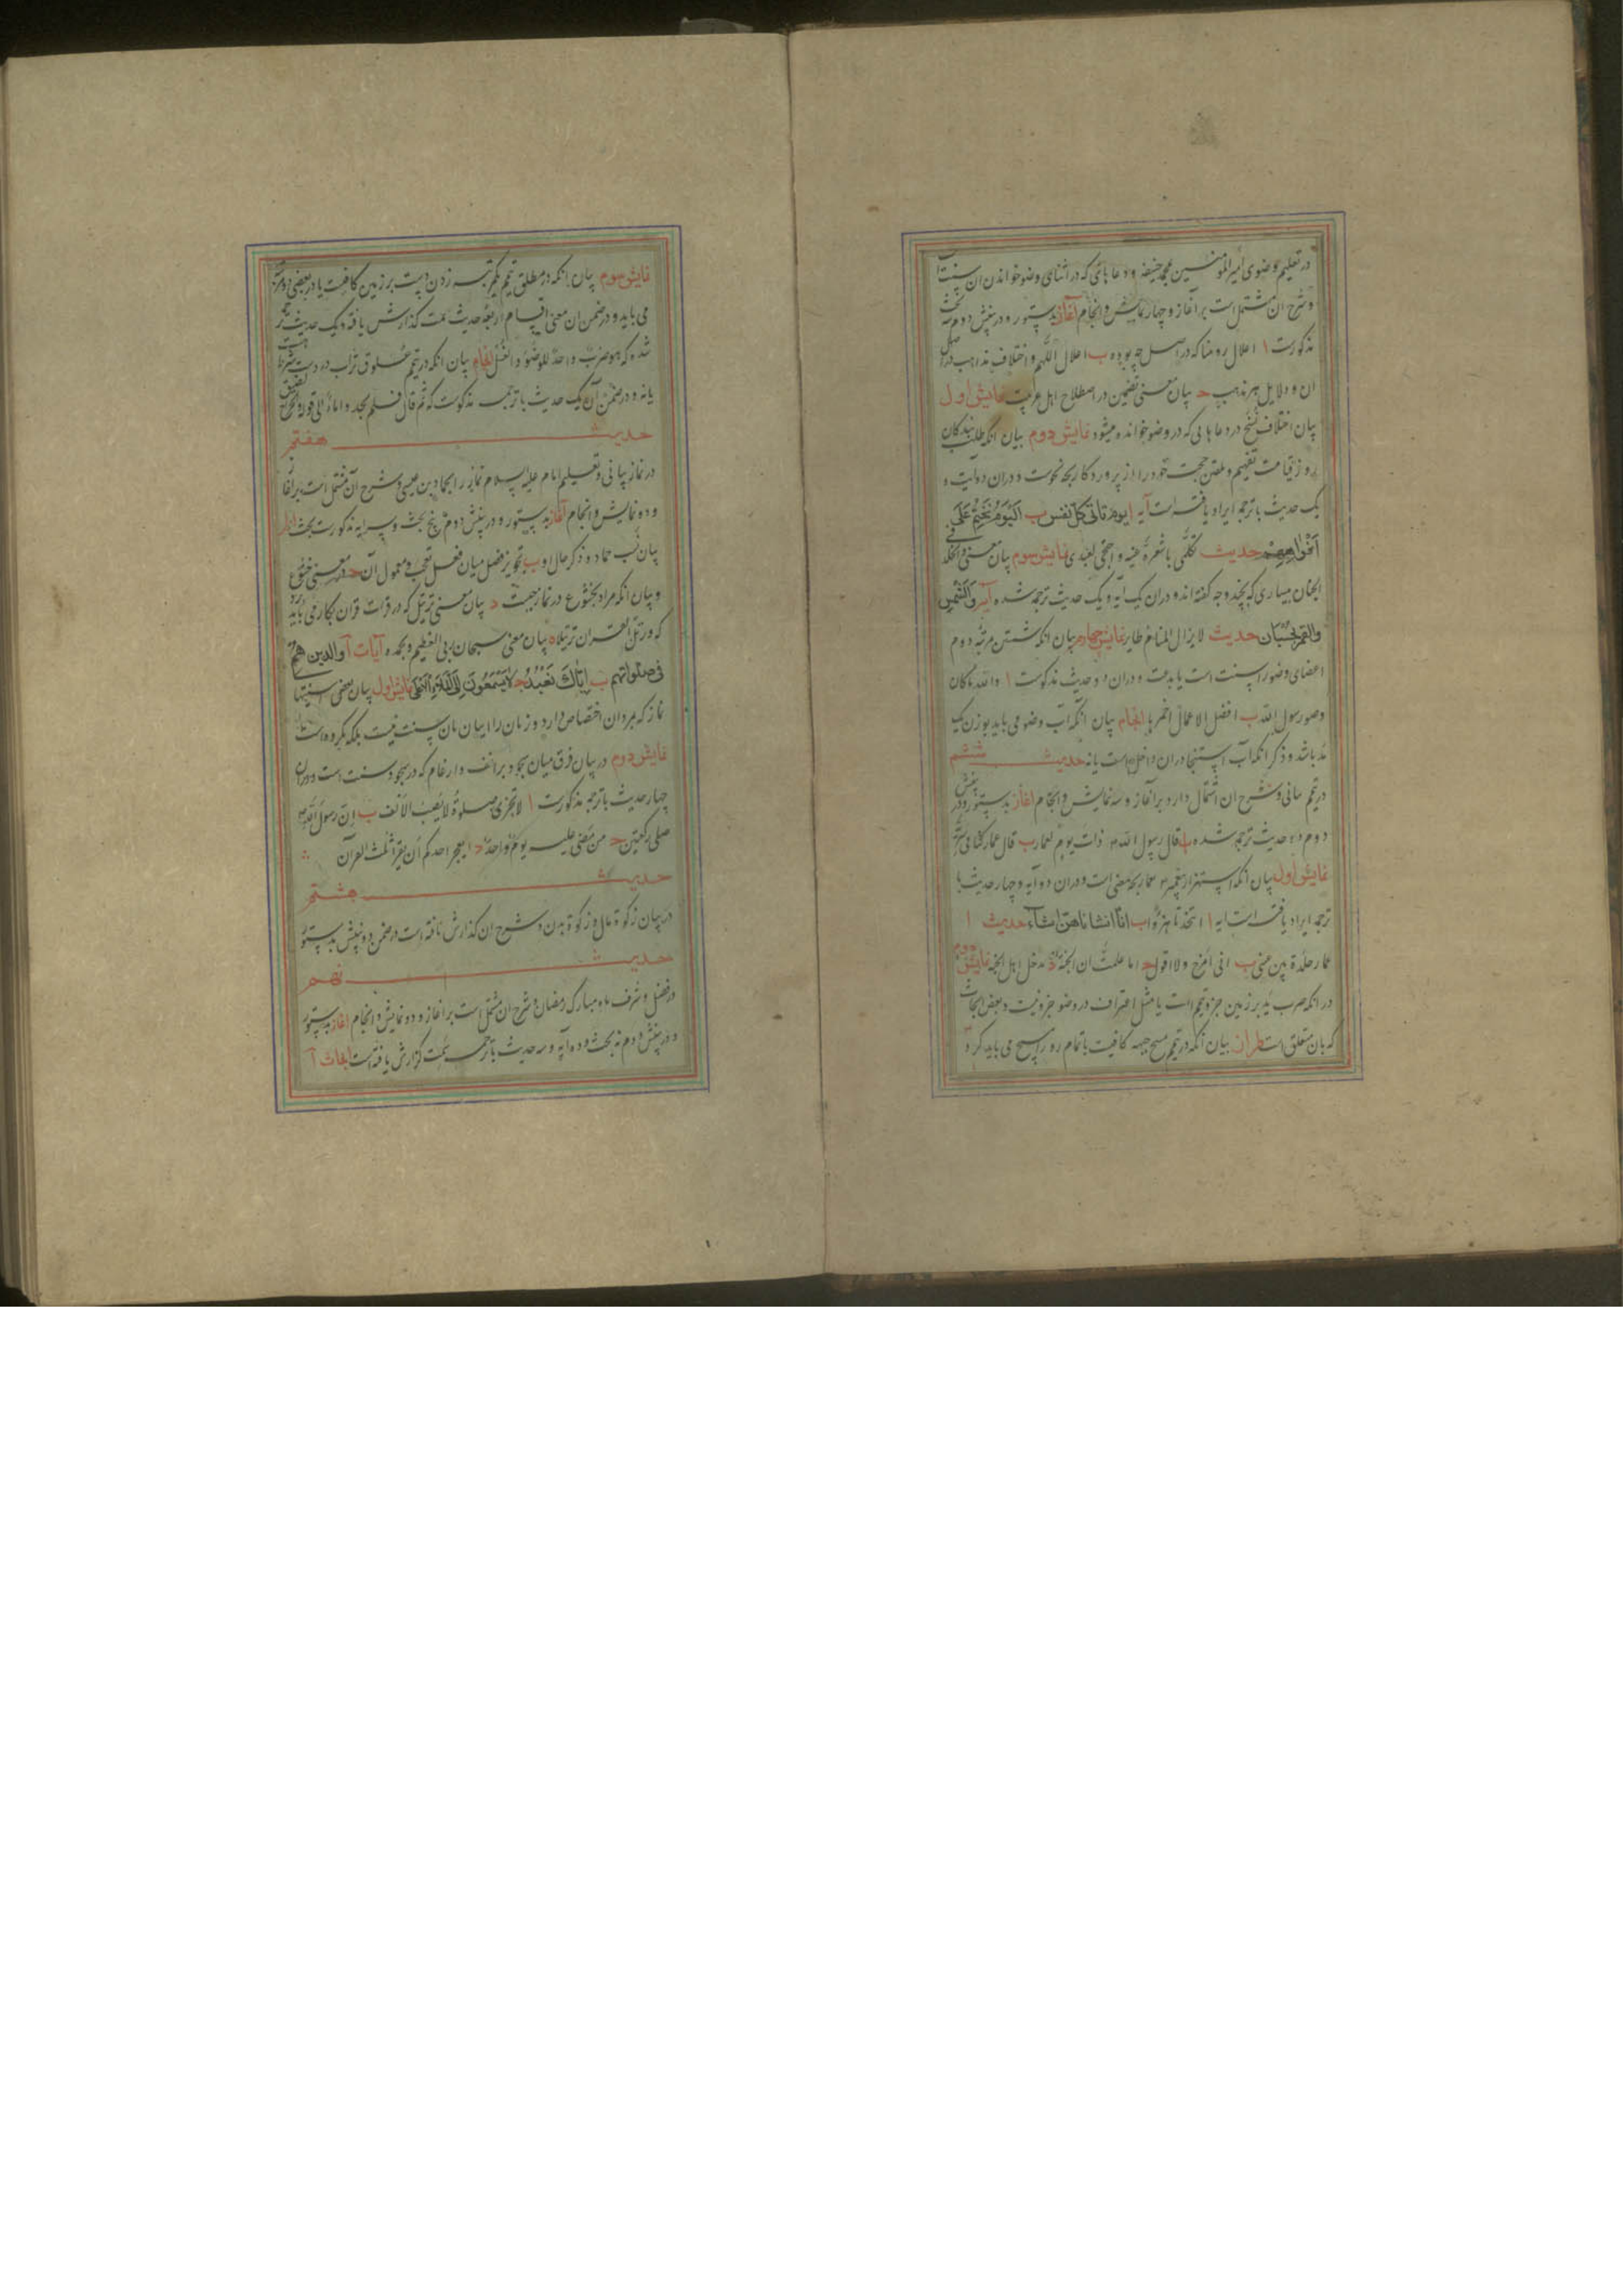 در تعلیم وضوی امیرالمؤمنین محمد حنفیه و دعا هائی که در اثنای وضو خواندن آن سنت است
و شرح آن مشتملست بر آغاز و چهار نمایش و انجام آغاز بدستور و در بینش دوم سه بحث
مذکورست ا اعلال روضنا که در اصل چه بوده ب اعلال اللهم و اختلاف مذاهب در اصل
ان و دلایل هر مذهب ح بیان معنی تضمین در اصطلاح اهل عربیت نمایش اول
بیان اختلاف نسخ در دعا هایی که در وضو خوانده میشود نمایش دوم بیان انکه طلب بندگان
روز قیامت تفهیم و تلقین حجت خود را از پروردگار بچه نحوست و دران دو آیت و
یک حدیث با ترجمه ایراد یافته است آیه ا یوم تاتی کل نفس ب الیوم نختم علی
افواههم حدیث تکلمی باشعره عینه و احتجی لعبدی نمایش سوم بیان معنی و الخلد فی
الجنان بیساری که بچند وجه گفته اند و دران یک آیه و یک حدیث ترجمه شده آیه و الشمس
والقمر بحسبان حدیث لا یزال المنام طایرا نمایش چهارم بیان انکه شستن مرتبه دوم
اعضای وضو را سنت است یا بدعت و دران دو حدیث مذکورست ا والله ما کان
وضوء رسول الله ب افضل الاعمال احمزها انجام بیان انکه آب وضو می باید بوزن یک
مد باشد و ذکر انکه آب استنجا دران داخل است یا نه حدیث ششم
در تیمم بیانی و شرح ان اشتمال دارد بر آغاز و سه نمایش و انجام آغاز بدستور و در بینش
دوم دو حدیث ترجمه شده ا قال رسول الله ص ذات یوم لعمار ب قال عمار کنا فی سریة
نمایش اول بیان انکه استهزاء پیغمبر ص عمار بچه معنی است و دران دو آیه و چهار حدیث با
ترجمه ایراد یافته است آیه ا اتتخذنا هزوا ب انا انشاناهن انشاء حدیث ا
عمار جلدة بین عینی ب انی امزح و لا اقول ح اما علمت ان الجنة د یدخل اهل الجنة نمایش دوم
در انکه ضرب ید بر زمین جزو تیمم است یا مثل اغتراف در وضو جزو نیست و بعض ابحاث
که بان متعلق است طراز بیان انکه در تیمم مسح جبهه کافیست یا تمام رو را مسح می باید کرد
نمایش سوم بیان انکه در مطلق تیمم یکمرتبه زدن دست بر زمین کافیست یا در بعضی دو مرتبه
می باید و در ضمن ان معنی اقسام اربعه حدیث سمت گذارش یافته و یک حدیث ترجمه
شده که هو ضرب واحد للوضوء و الغسل انجام بیان انکه در تیمم علوق تراب در دست شرط است
یا نه و در ضمن آن یک حدیث با ترجمه مذکورست که ثم قال فلم یجد و اماء الی قوله
حدیث هفتم
در نماز بیانی و تعلیم امام علیه السلام نماز را بحماد بن عیسی و شرح آن مشتمل است بر آغاز
و دو نمایش و انجام آغاز بدستور و در بینش دوم پنج بحث و سه آیه مذکورست بحث ا
بیان نسب حماد و ذکر حال او ب تجویز فصل میان فعل تعجب و معمول آن ح معنی خشوع
و بیان انکه مراد بخشوع در نماز چیست د بیان معنی ترتیل که در قرات قران بکار می باید برد
که ورتل القران ترتیلا ه بیان معنی سبحان ربی العظیم و بحمده آیات ا والذین هم
فی صلواتهم ب ایاک نعبد ح لا یسمعون الی الملاء الاعلی نمایش اول بیان بعضی سنتیها
نماز که بمردان اختصاص دارد و زنان را ایبان بان سنت نیست بلکه مکروه است
نمایش دوم در بیان فرق میان سجود بر انف و ارغام که در سجود سنت است و دران
چهار حدیث با ترجمه مذکورست ا لا تجزی صلوة لا یصیب الانف ب ان رسول الله ص
صلی رکعتین ح من مضی علیه یوم واحد د ایعجز احدکم ان یقرا ثلث القرآن
حدیث هشتم
در بیان زکوة مال و زکوة بدن و شرح ان گذارش یافته است در ضمن دو بینش بدستور
حدیث نهم
در فضل و شرف ماه مبارک رمضان و شرح ان مشتمل است بر آغاز و دو نمایش و انجام آغاز بدستور
و در بینش دوم نه بحث و ده آیه و سه حدیث با ترجمه سمت گزارش یافته است ابحاث ا